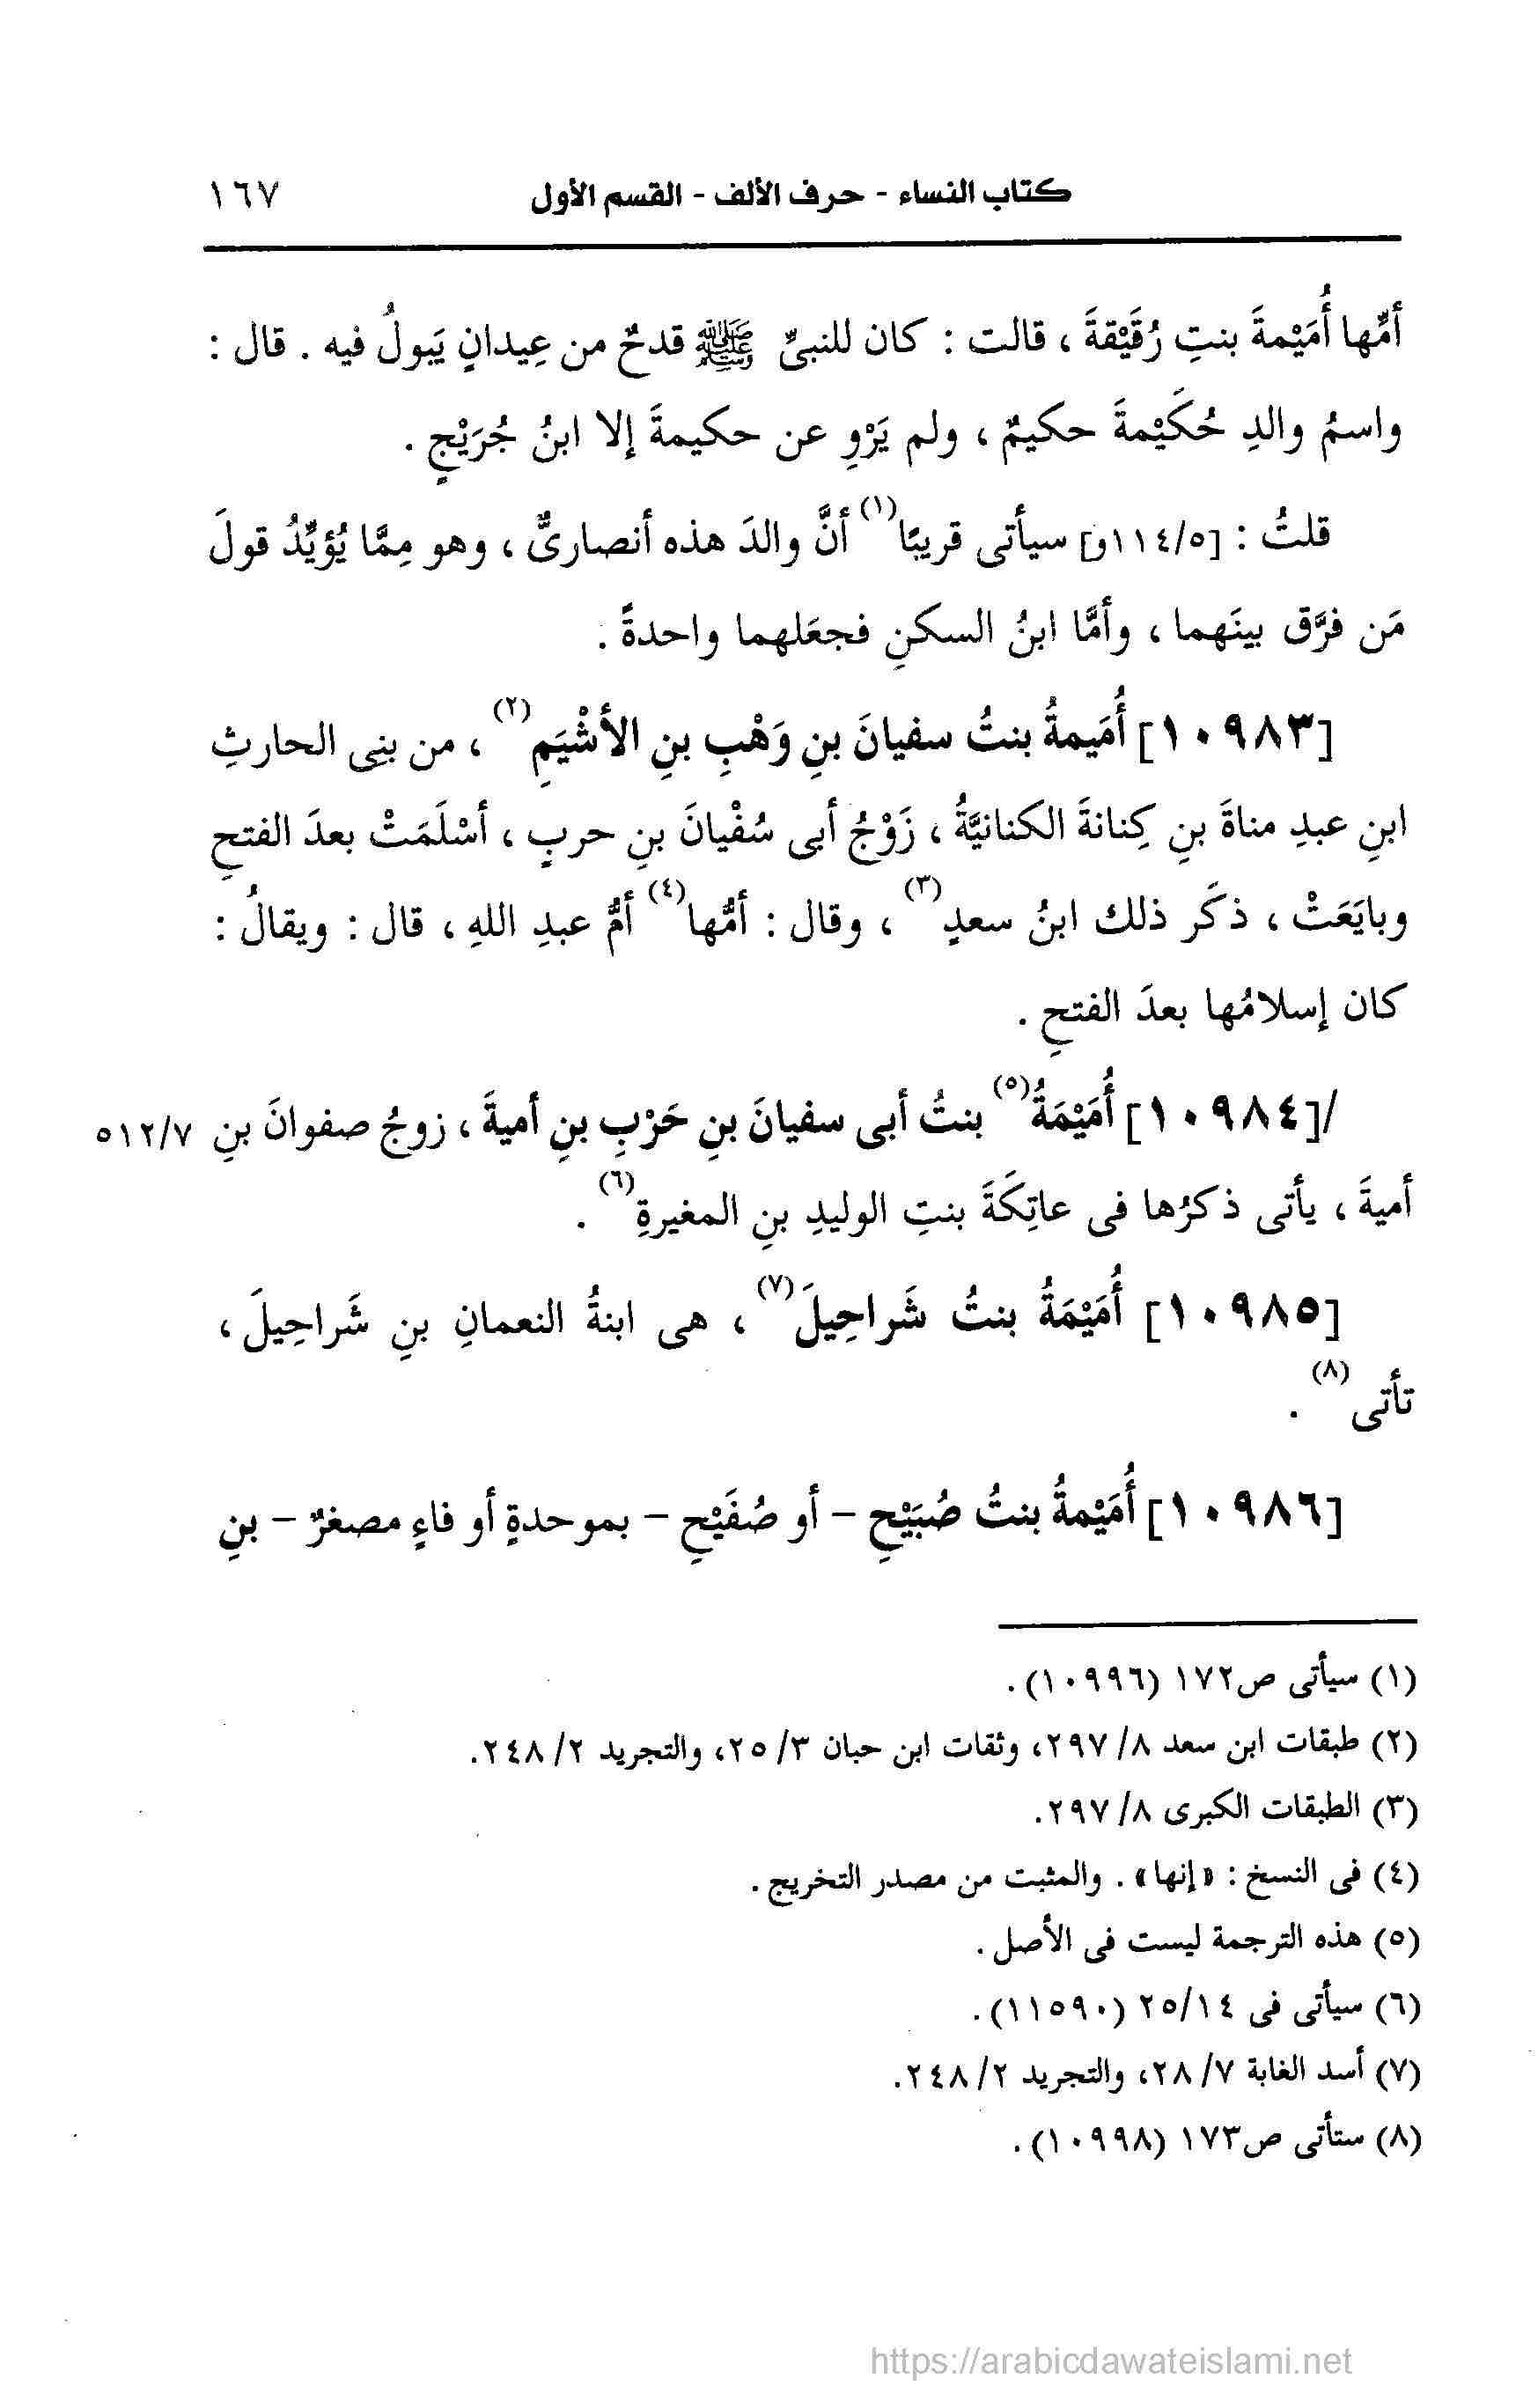 كتاب النساء - حرف الألف - القسم الأول ١٦٧
أمِّها أُمَيْمةَ بنتِ رُقَيْقةَ ، قالت : كان للنبىِّ ﷺ قدحٌ من عِيدانٍ يَبولُ فيه . قال :
واسمُ والدِ حُكَيْمةَ حكيمٌ ، ولم يَرْوِ عن حكيمةَ إلا ابنُ جُرَيْجٍ .
قلتُ : [١١٤/٥و] سيأتى قريبًا(١) أنَّ والدَ هذه أنصارىٌّ ، وهو مِمَّا يُؤيِّدُ قولَ
مَن فرَّق بينَهما ، وأمَّا ابنُ السكنِ فجعَلهما واحدةً .
[١٠٩٨٣] أُمَيمةُ بنتُ سفيانَ بنِ وَهْبِ بنِ الأشْيَمِ(٢) ، من بنِى الحارثِ
ابنِ عبدِ مناةَ بنِ كِنانةَ الكنانيَّةُ ، زَوْجُ أبى سُفْيانَ بنِ حربٍ ، أسْلَمَتْ بعدَ الفتحِ
وبايَعَتْ ، ذكَر ذلك ابنُ سعدٍ(٣) ، وقال : أمُّها(٤) أمُّ عبدِ اللهِ ، قال : ويقالُ :
كان إسلامُها بعدَ الفتحِ .
/[١٠٩٨٤] أُمَيْمَةُ(٥) بنتُ أبى سفيانَ بنِ حَرْبِ بنِ أميةَ ، زوجُ صفوانَ بنِ ٥١٢/٧
أميةَ ، يأتى ذكرُها فى عاتِكَةَ بنتِ الوليدِ بنِ المغيرةِ(٦) .
[١٠٩٨٥] أُمَيْمَةُ بنتُ شَراحِيلَ(٧) ، هى ابنةُ النعمانِ بنِ شَراحِيلَ ،
تأتى(٨) .
[١٠٩٨٦] أُمَيْمةُ بنتُ صُبَيْحِ - أو صُفَيْحِ - بموحدةٍ أو فاءٍ مصغرٌ - بنِ
(١) سيأتى ص١٧٢ (١٠٩٩٦).
(٢) طبقات ابن سعد ٨/ ٢٩٧، وثقات ابن حبان ٣/ ٢٥، والتجريد ٢/ ٢٤٨.
(٣) الطبقات الكبرى ٨/ ٢٩٧.
(٤) فى النسخ : «إنها» . والمثبت من مصدر التخريج .
(٥) هذه الترجمة ليست فى الأصل .
(٦) سيأتى فى ٢٥/١٤ (١١٥٩٠).
(٧) أسد الغابة ٧/ ٢٨، والتجريد ٢/ ٢٤٨.
(٨) ستأتى ص١٧٣ (١٠٩٩٨).
https://arabicdawateislami.net